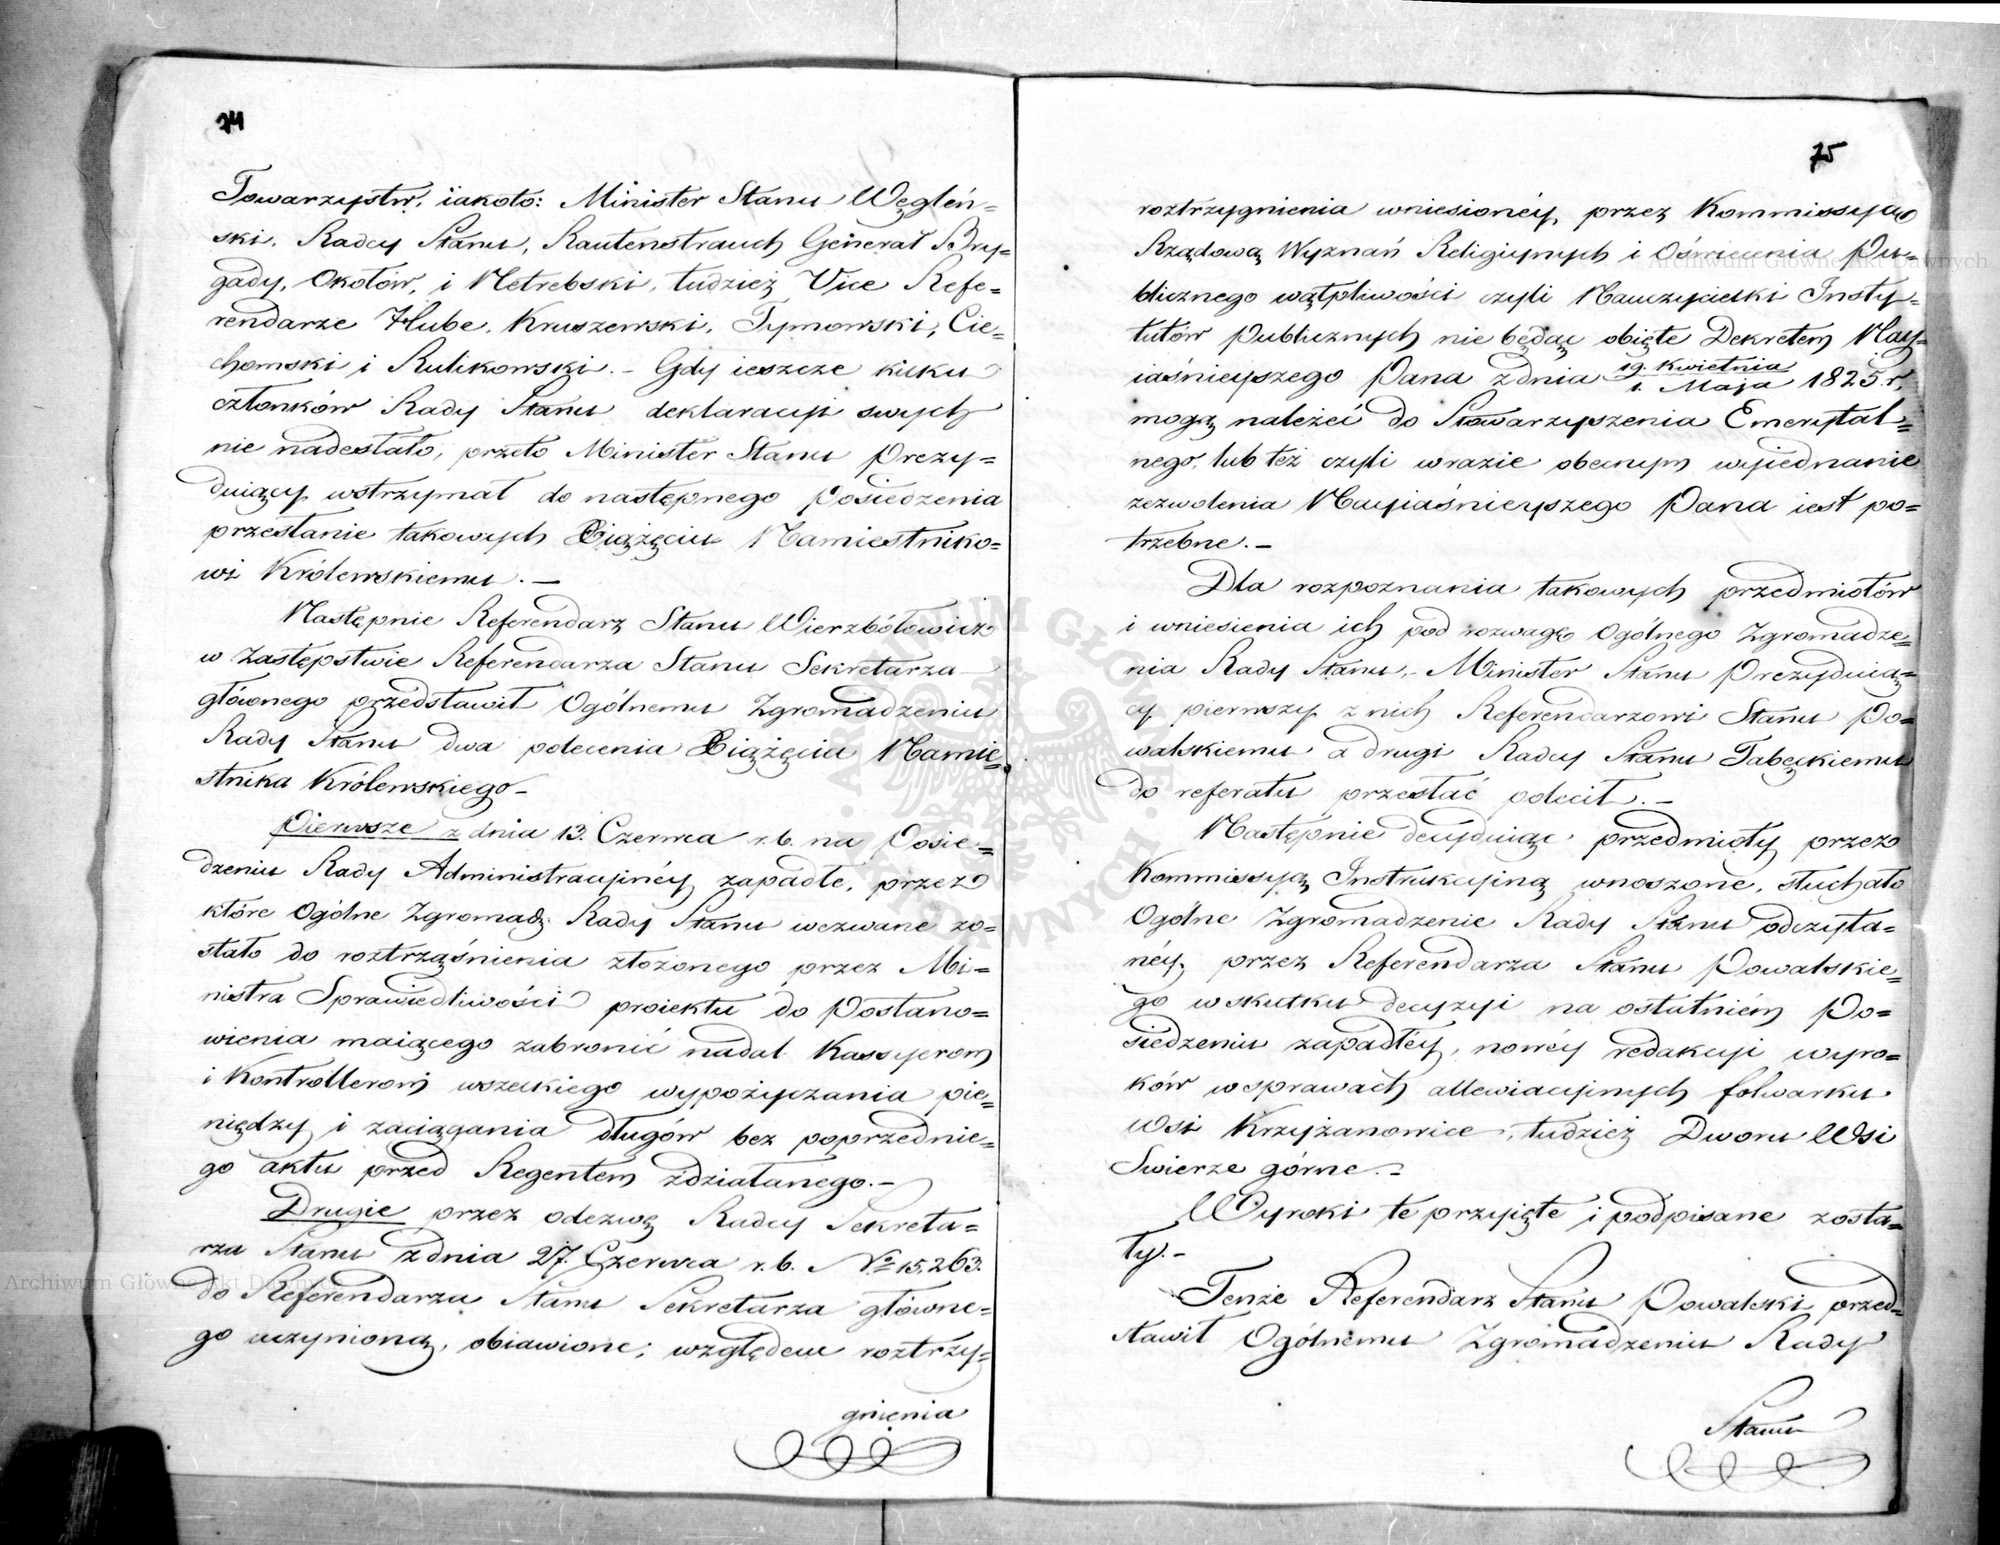 74
Towarzystw, iakoto: Minister Stanu Węgleń=
ski, Radcy Stanu, Rautenstrauch Generał Bry=
gady, Okołów, i Netrebski, tudzież Vice Refe=
rendarze Hube, Kruszewski, Tymowski, Cie=
chomski i Rulikowski. – Gdy ieszcze kilku
członków Rady Stanu deklaracyi swych
nie nadesłało, przeto Minister Stanu Prezy=
duiący wstrzymał do następnego Posiedzenia
przesłanie takowych Xiążęciu Namiestniko=
wi Królewskiemu. –
Następnie Referendarz Stanu Wierzbołowicz
w zastępstwie Referendarza Stanu Sekretarza
głównego przedstawił Ogólnemu Zgromadzeniu
Rady Stanu dwa polecenia Xiążęcia Namie=
stnika Królewskiego –
Pierwsze z dnia 13. Czerwca r. b. na Posie=
dzeniu Rady Administracyinéy zapadłe, przez
które Ogólne Zgromadz: Rady Stanu wezwane zo=
stało do roztrząśnienia złożonego przez Mi=
nistra Sprawiedliwości proiektu do Postano=
wienia maiącego zabronić nadal Kassyerom
i Kontrollerom wszelkiego wypożyczania pie=
niędzy i zaciągania długów bez poprzednie=
go aktu przed Regentem zdziałanego. –
Drugie przez odezwę Radcy Sekreta=
rza Stanu z dnia 27. Czerwca r. b. No 15,263.
do Referendarza Stanu Sekretarza główne=
go uczynioną, obiawione; względem roztrzy=
gnienia
75
roztrzygnienia wniesionéy przez Kommissyą
Rządową Wyznań Religiynych i Oświecenia Pu=
blicznego wątpliwości czyli Nauczycielki Insty=
tutów Publicznych nie będąc obięte Dekretem Nay=
iaśnieyszego Pana z dnia 19. Kwietnia / 1. Maja 1825. r.
mogą należeć do Stowarzyszenia Emerytal=
nego, lub też czyli w razie obecnym wyiednanie
zezwolenia Nayiaśnieyszego Pana iest po=
trzebne. –
Dla rozpoznania takowych przedmiotów
i wniesienia ich pod rozwagę Ogólnego Zgromadze=
nia Rady Stanu, – Minister Stanu Prezyduią=
cy pierwszy z nich Referendarzowi Stanu Po=
walskiemu a drugi Radcy Stanu Tabęckiemu
do referatu przesłać polecił. –
Następnie decyduiąc przedmioty przez
Kommissyą Instrukcyiną wnoszone, słuchało
Ogólne Zgromadzenie Rady Stanu odczyta=
néy, przez Referendarza Stanu Powalskie=
go w skutku decyzyi na ostatniém Po=
siedzeniu zapadłéy, nowéy redakcyi wyro=
ków w sprawach allewiacyinych folwarku
Wsi Krzyżanowice, tudzież Dworu Wsi
Swierze górne. –
Wyroki te przyięte i podpisane zosta=
ły. –
Tenże Referendarz Stanu Powalski przed=
stawił Ogólnemu Zgromadzeniu Rady
Stanu
Archiwum Główne Akt Dawnych
Archiwum Główne Akt Dawnych
ARCHIWUM GŁÓWNE AKT DAWNYCH